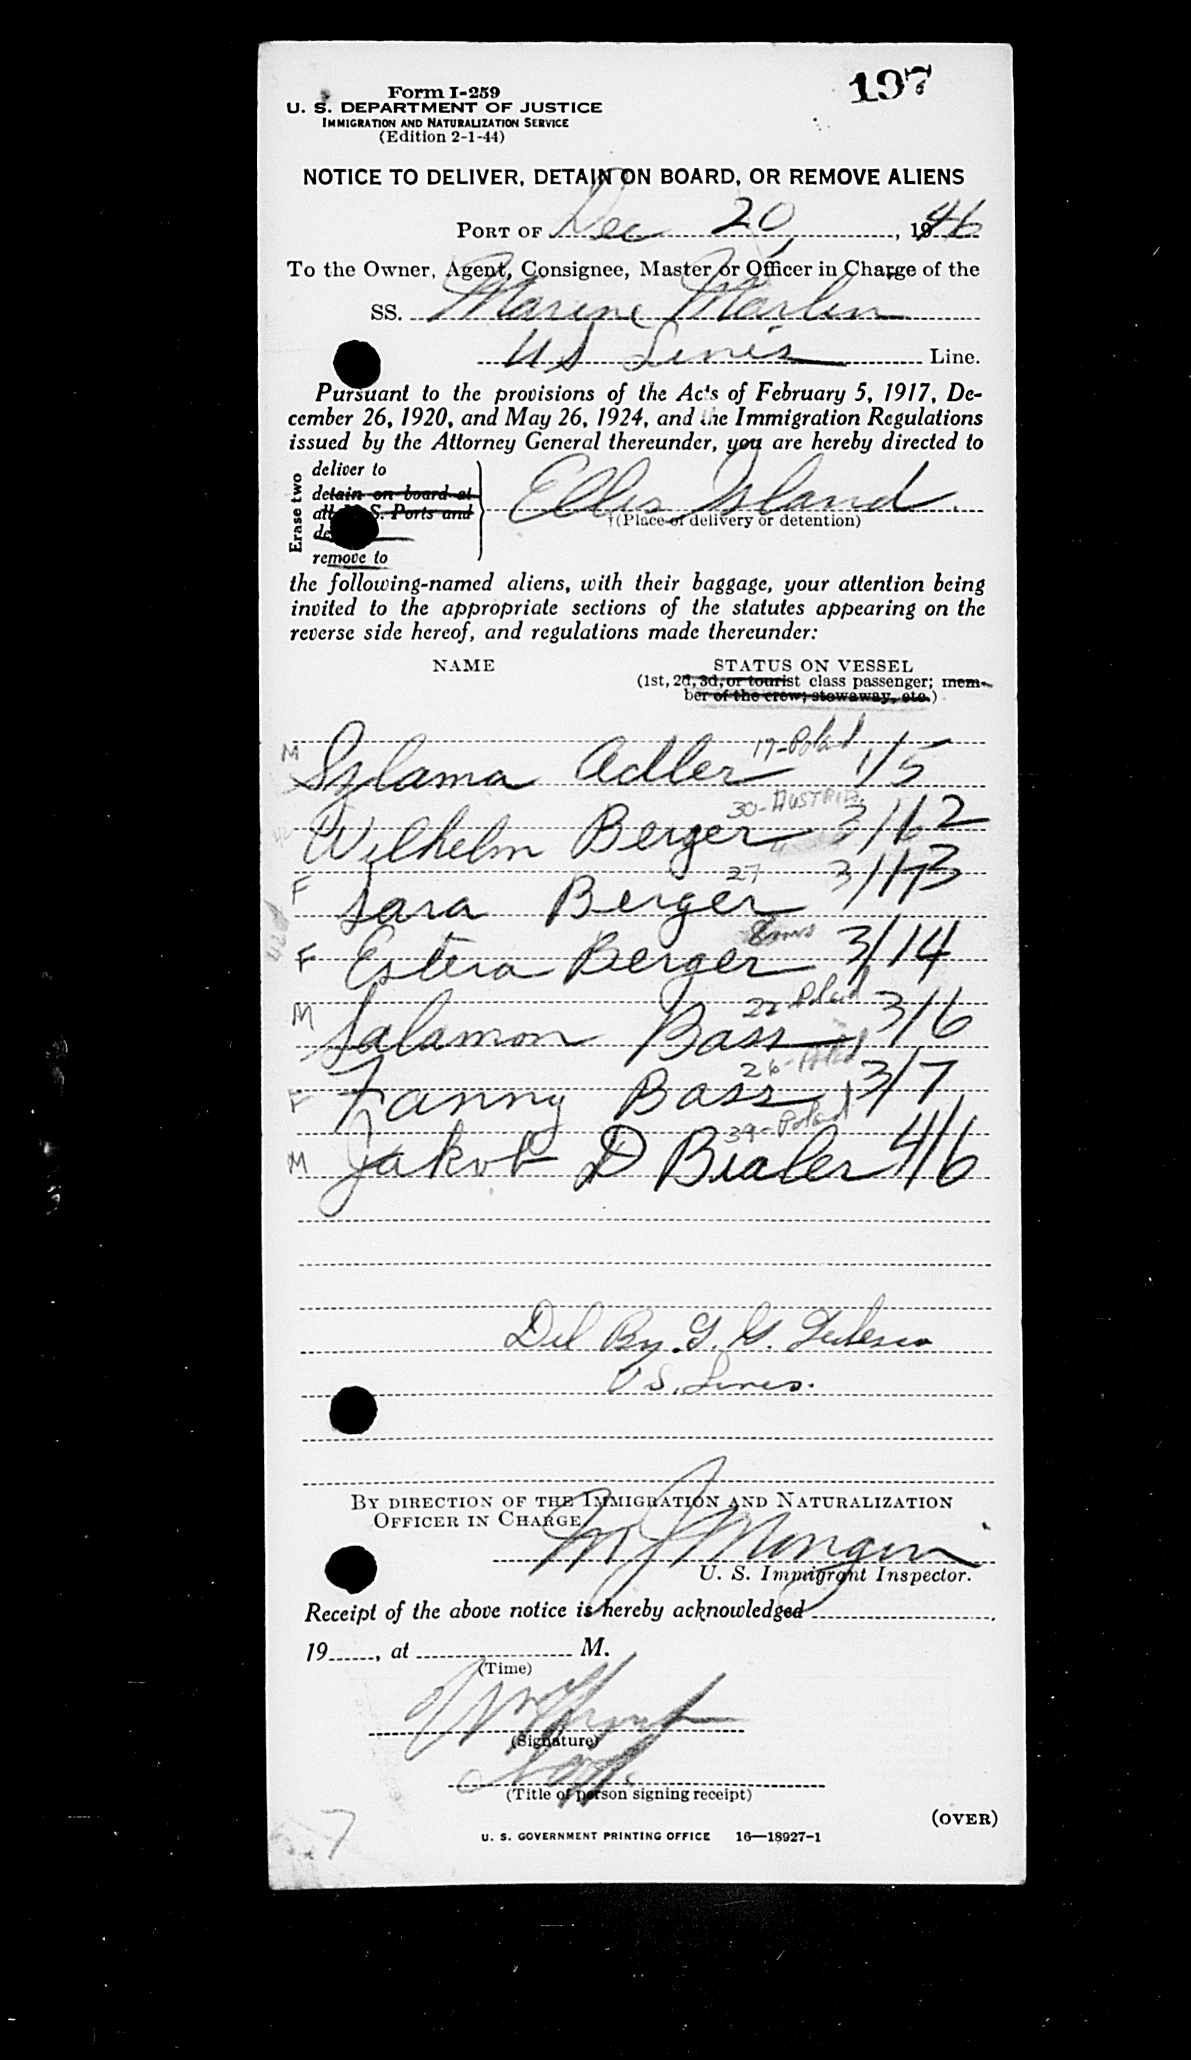 197
Form I-259
U. S. DEPARTMENT OF JUSTICE
IMMIGRATION AND NATURALIZATION SERVICE
(Edition 2-1-44)
NOTICE TO DELIVER, DETAIN ON BOARD, OR REMOVE ALIENS
PORT OF Dec 20, , 1946
To the Owner, Agent, Consignee, Master or Officer in Charge of the
SS. Marine Marlin
US Lines Line.
Pursuant to the provisions of the Acts of February 5, 1917, De-
cember 26, 1920, and May 26, 1924, and the Immigration Regulations
issued by the Attorney General thereunder, you are hereby directed to
Erase two
deliver to
detain on board at
all U. S. Ports and
remove to
Ellis Island.
†(Place of delivery or detention)
the following-named aliens, with their baggage, your attention being
invited to the appropriate sections of the statutes appearing on the
reverse side hereof, and regulations made thereunder:
NAME STATUS ON VESSEL
(1st, 2d, 3d, or tourist class passenger; mem-
ber of the crew; stowaway, etc.)
M Szlama Adler 17-Poland 1/5
Wilhelm Berger 30-AUSTRIA 3/12
F Sara Berger 27 3/13
F Estera Berger 8 mos 3/14
M Salamon Bass 22-Poland 3/6
F Fanny Bass 26-Poland 3/7
M Jakob D Bialer 39-Poland 4/6
Del By G. G.
U.S. Lines.
BY DIRECTION OF THE IMMIGRATION AND NATURALIZATION
OFFICER IN CHARGE.
M J Mongin
U. S. Immigrant Inspector.
Receipt of the above notice is hereby acknowledged
19 , at M.
(Time)
(Signature)
(Title of person signing receipt)
(OVER)
7
U. S. GOVERNMENT PRINTING OFFICE 16—18927-1